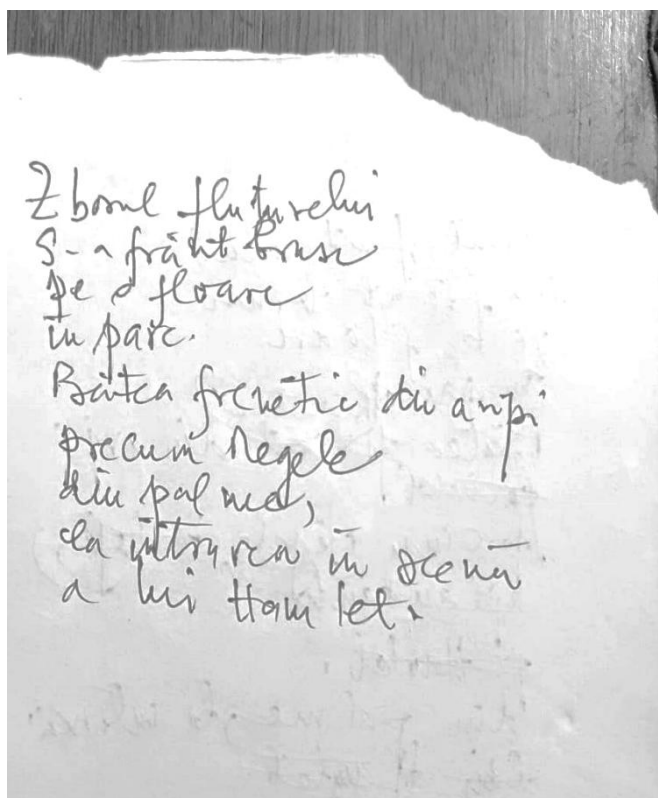 Zborul fluturelui
S-a frânt brusc
pe o floare
în parc.
Bătea frenetic din aripi
precum Regele
din palme,
la intrarea în scenă
a lui Hamlet.